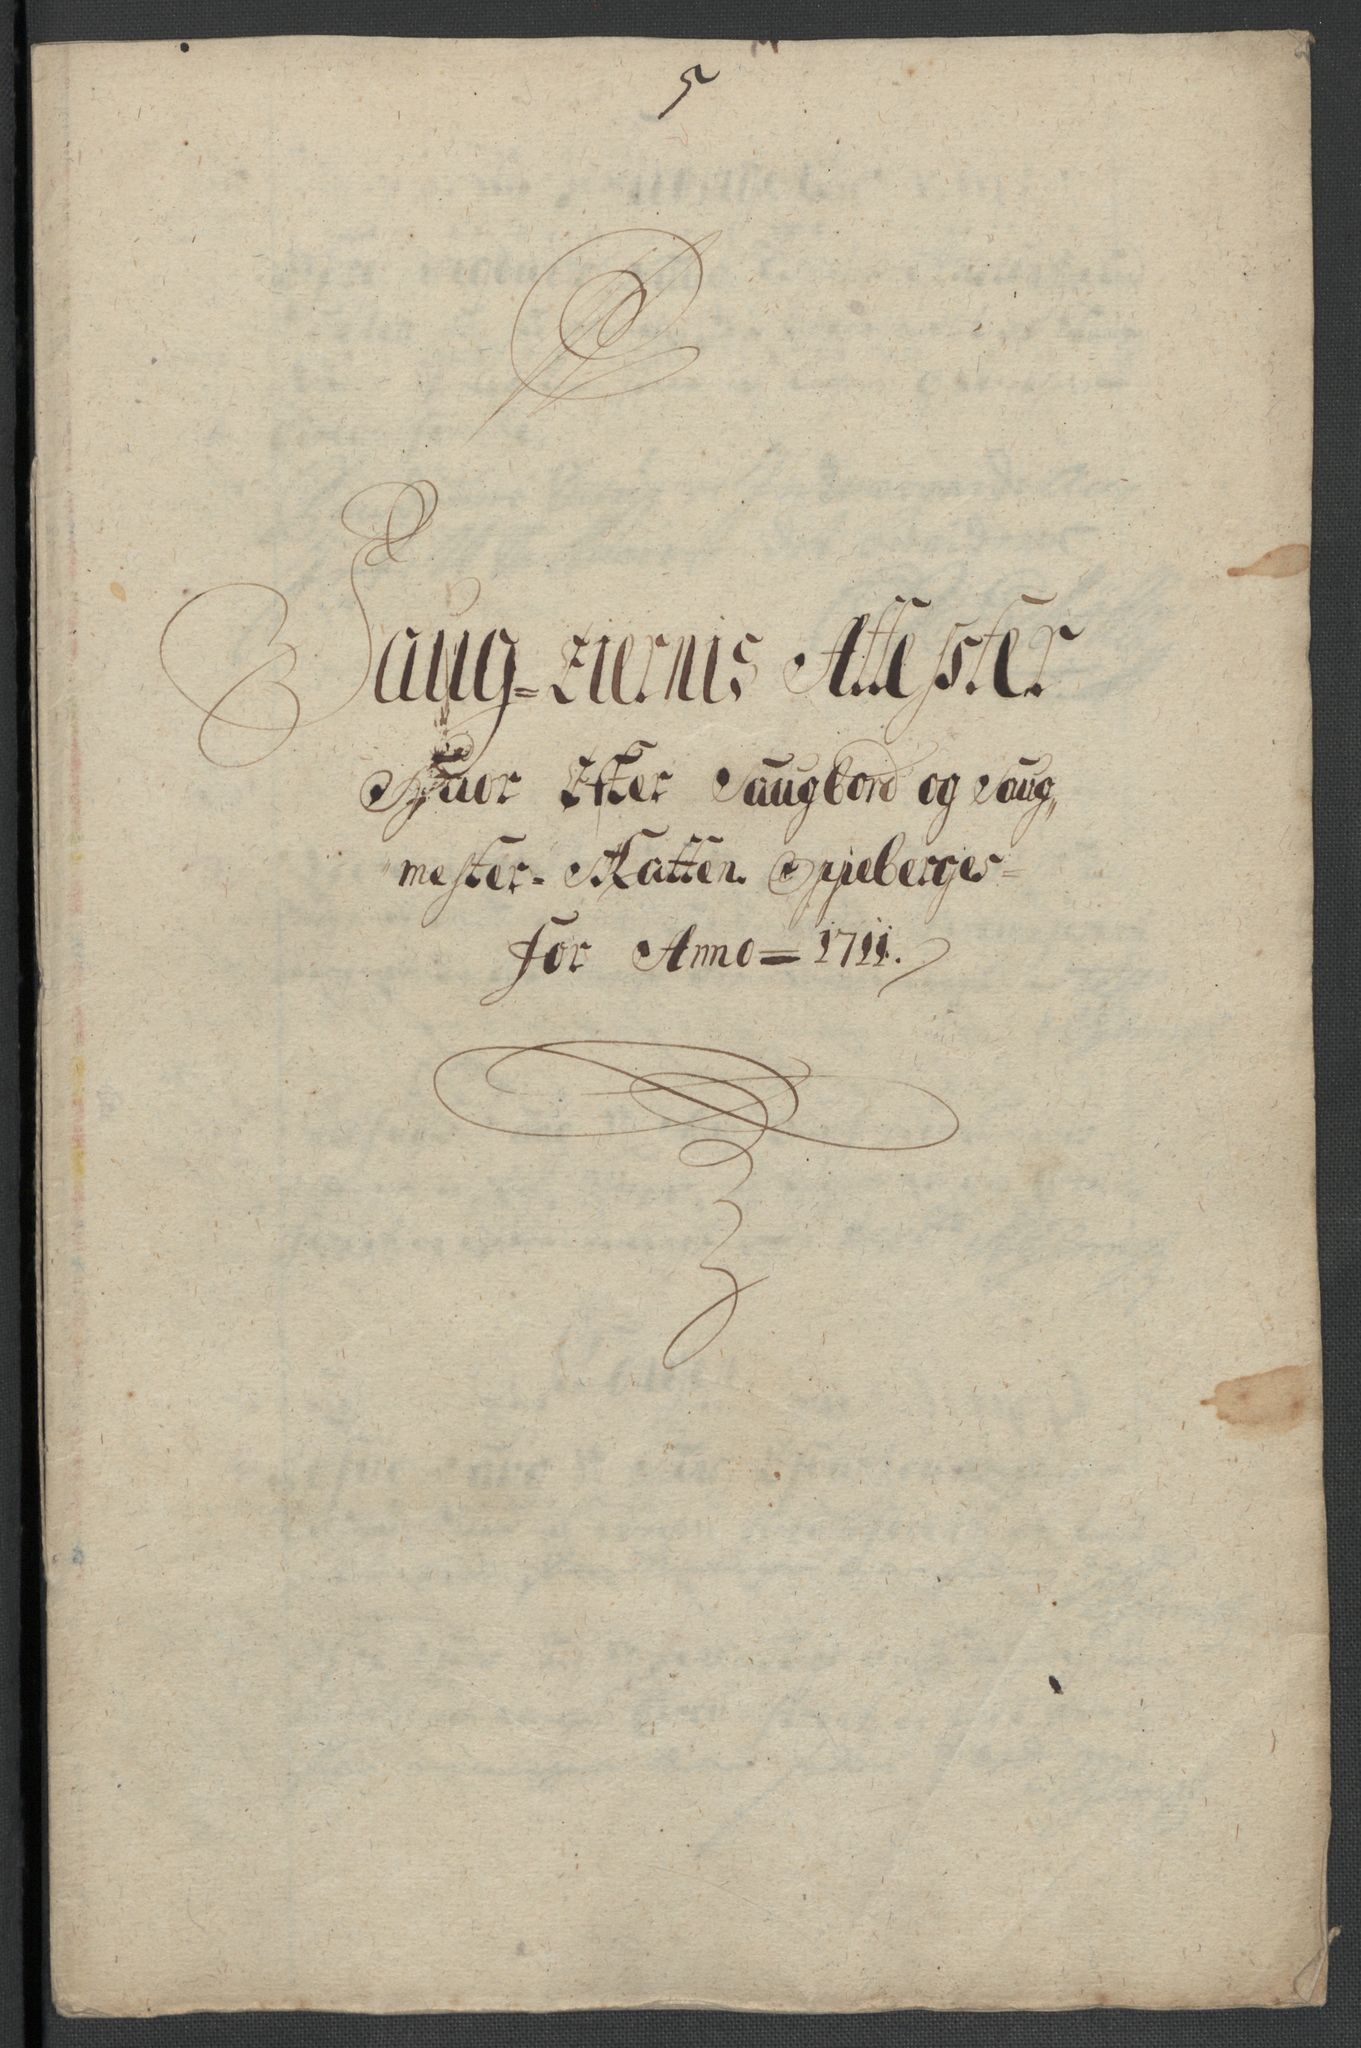 5
Saug-Eiernis Attester
Huor Efter Saugbord og Saug„
mester- Skatten Oppeberges
for Anno= 1711.